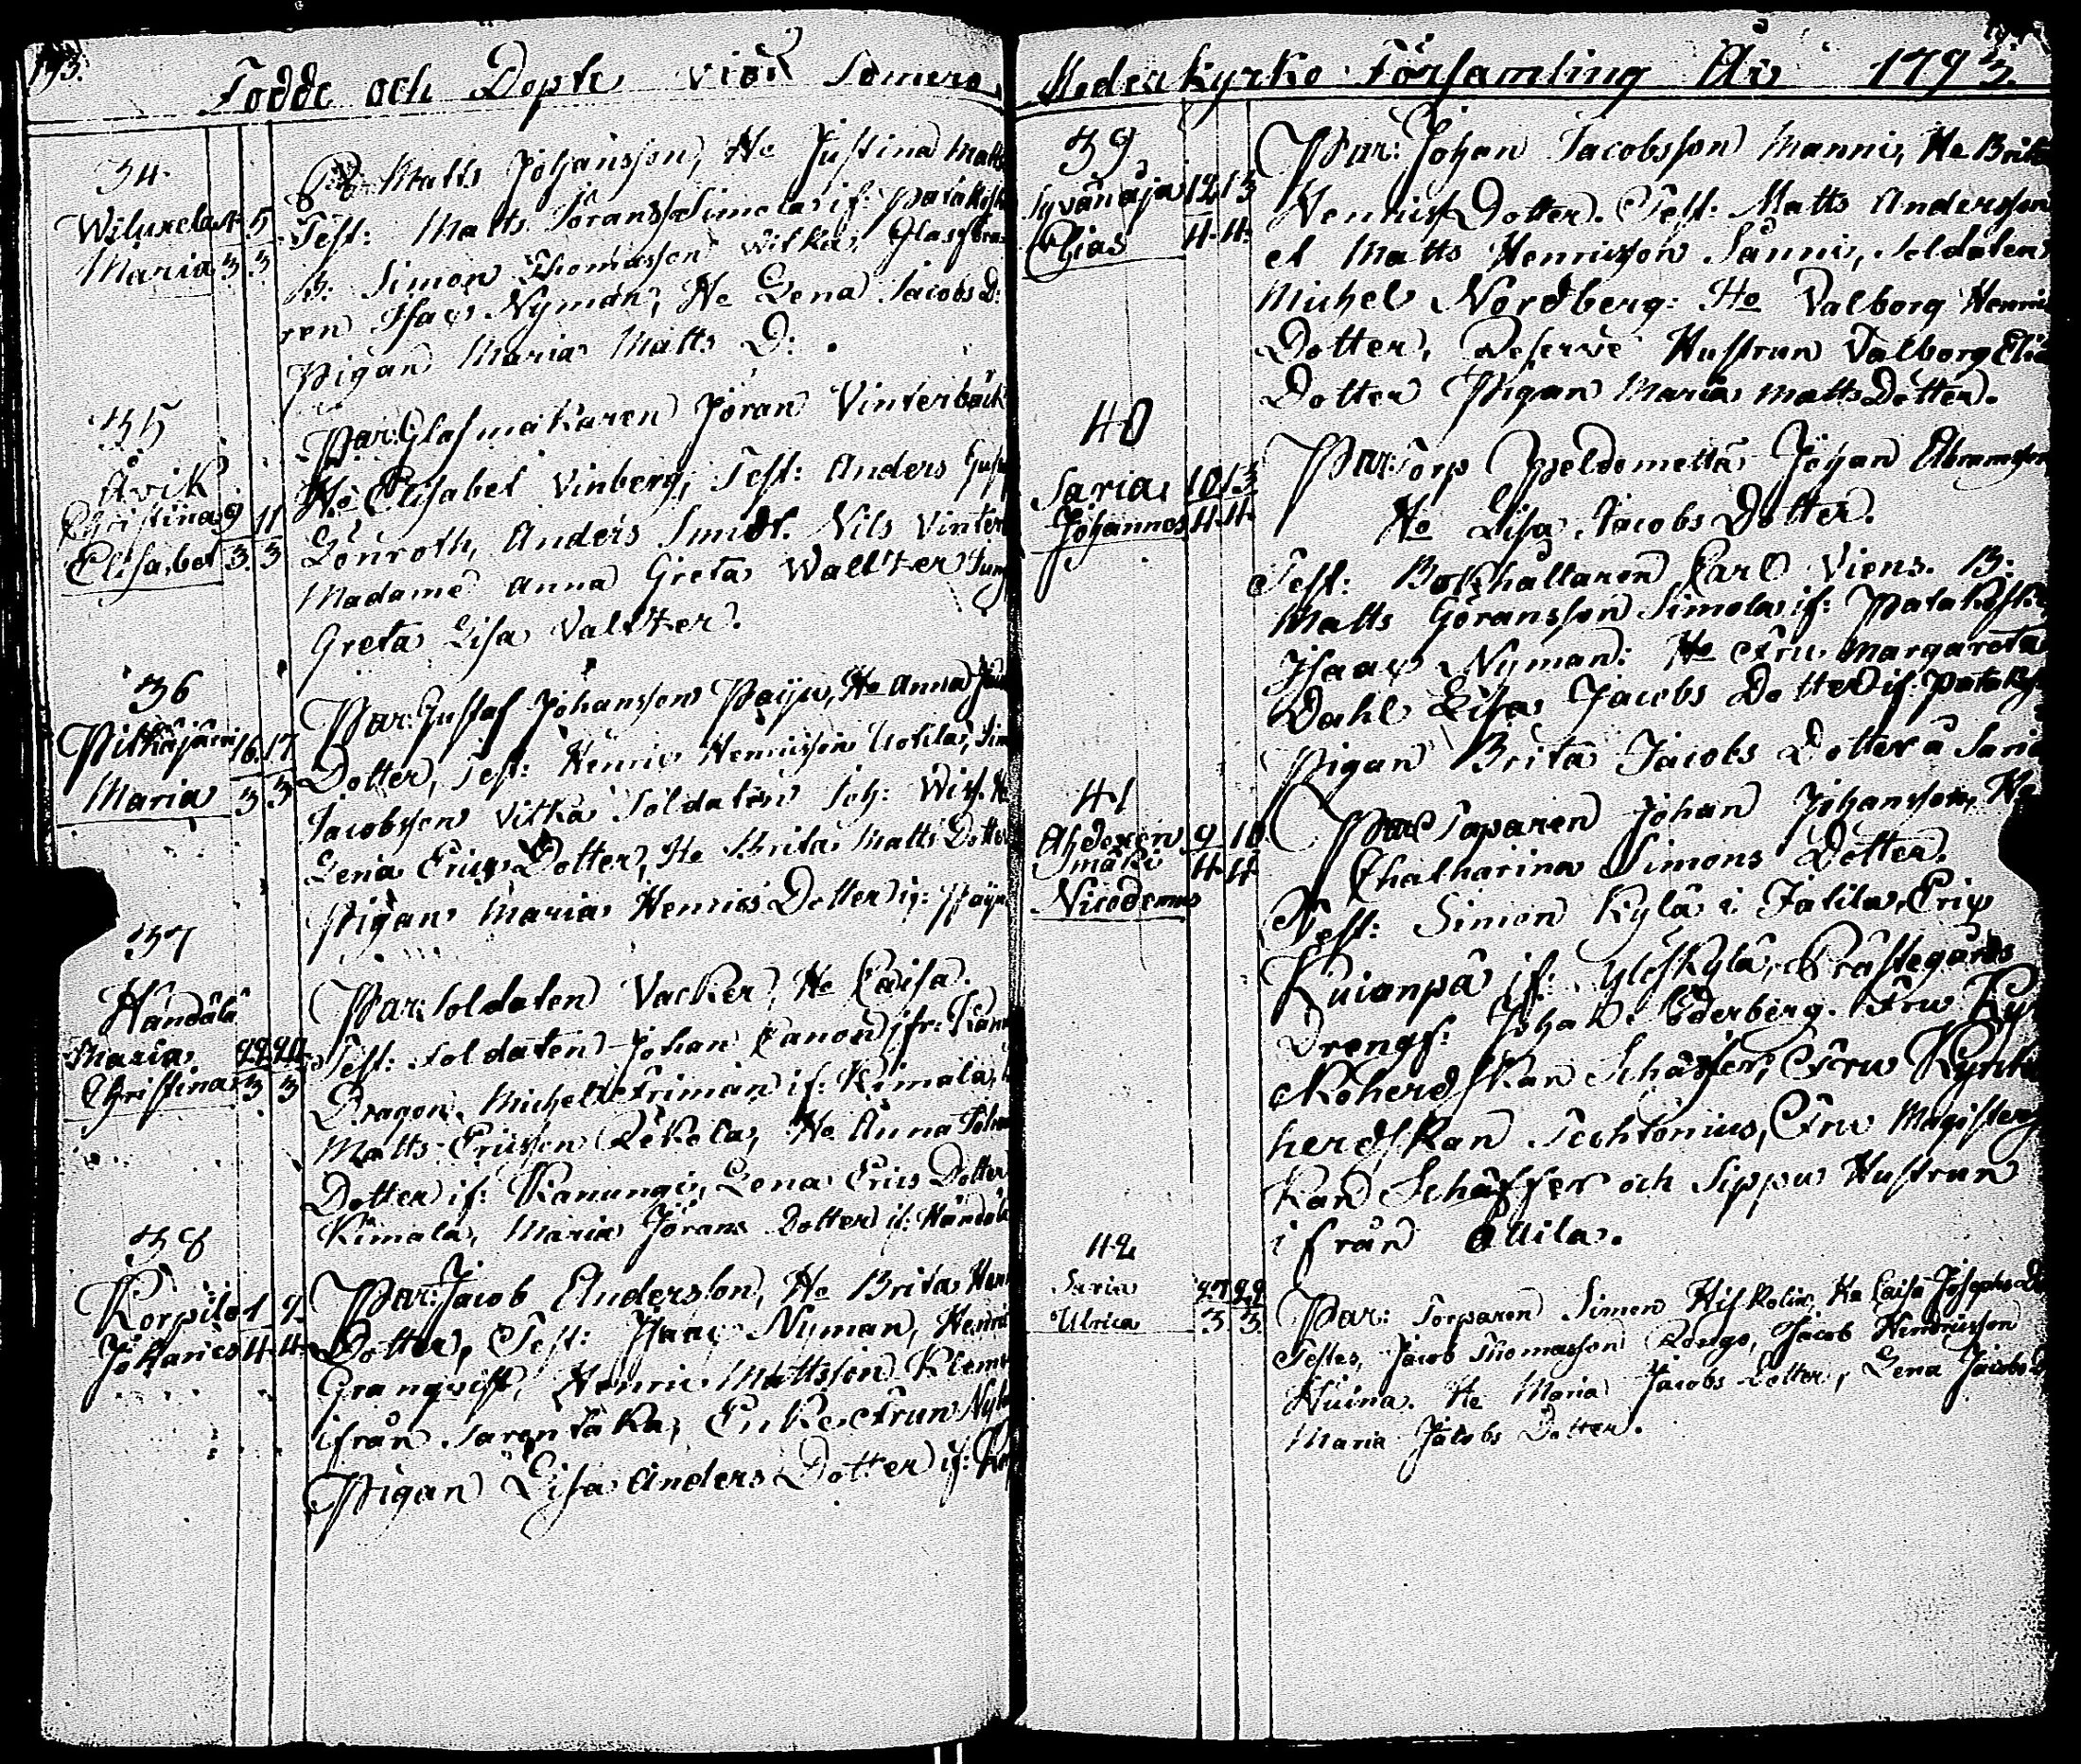 193.
Födde och Döpte vid Somero
34
Wiluxela 4. 5
Maria 3 3
Matts Johansson, He Justina Matts
Test: Matts Göranss Simola if: Palakoski
B: Simon Thomasson Witka, Glasfbra
ren Isac Nyman, He Lena Jacobs D:
Pigan Maria Matts D:
35
Åvik
Christina 9 11
Elisabet 3. 3
Par: Glasmakaren Jöran Vinterbäck
He Elisabet Vinberg, Test: Anders Gust
Lönroth, Anders Smidt. Nils Vinter
Madame Anna Greta Waltzer Jung
Greta Lisa Valtzer.
36
Pitkäjärvi 16. 17
Maria 3 3
Par: Gustaf Johansson Päiju, He Anna Joh
Dotter, Test: Henric Henricsson Uotila, Sim
Jacobsson Vitka Soldaten Joh: Wisf. He
Lena Erics Dotter, He Brita Matts Dotter
Pigan Maria Henrics Dotter if: Päiju
37
Händälä
Maria 22 24
Christina 3 3
Par: Soldaten Vacker, He Caisa.
Test: Soldaten Johan Canon ifr: Kanu
Dragon. Michel Friman if: Kimala,
Matts Ericsson Rekola, He Anna Johans
Dotter if: Kanungi, Lena Erics Dotter
Kimala, Maria Jörans Dotter if: Händälä
38
Korpilo 1 2
Johannes 4. 4.
Par: Jacob Andersson, He Brita Hen
Dotter, Test: Isaac Nyman, Henri
Granqvist, Henric Mattsson Klem
ifrån Sarentaka, Enke Frun Nyb
Pigan Lisa Anders Dotter if: Ko
Moderkyrko Församling År 1793.
39
Syvänoja 12 13
Elias 4. 4.
Par: Johan Jacobsson Manni, He Brita
Henrics Dotter. Test: Matts Andersson
et Matts Henricsson Sänni, Soldaten
Michel Nordberg: He Valborg Henric
Dotter, Reserve Hustrun Valborg Elia
Dotter Pigan Maria Matts Dotter.
40
Saria 10 13
Johannes 4. 4.
Par: Torp Johan Abramsson
He Lisa Jacobs Dotter.
Test: Bokhållaren Carl Viens. B:
Matts Göransson Simola if: Palakoski
Isaac Nyman: He Fru Margareta
Dahl Lisa Jacobs Dotter if: Palakos
Pigan Brita Jacobs Dotter å Saria
41
Ahdoxen 9 10
mäki 4. 4.
Nicodemus
Par: Torparen Johan Johansson, He
Chatharina Simons Dotter.
Test: Simon Kylä i Jatila, Eric
Kuionpä if: Yleskylä, Prästegårds
Drengf: Johan Söderberg. Fru Ky
koherdskan Schäffer, Fru Kyrko
herdskan Techtonius, Fru Magisters
kan Schäffer och Sippu Hustrun
ifrån Ollila.
42
Saria 27 29
Ulrica 3 3.
Par: Torparen Simon Hiskolin, He Caisa Josephs D
Testes, Jacob Thomasson Rongo, Jacob Hendricsson
Huina. He Maria Jacobs Dotter, Lena Jacobs D
Maria Jacobs Dotter.